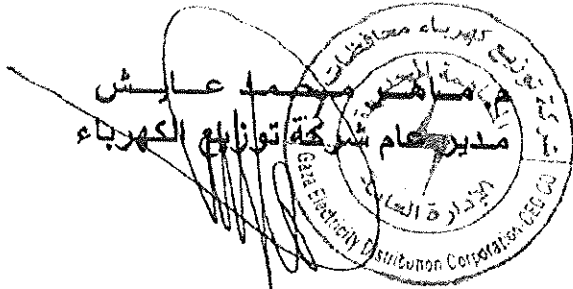 م. ماهر محمد عايش
مدير عام شركة توزيع الكهرباء
شركة توزيع كهرباء محافظات
الإدارة العامة
Gaza Electricity Distribution Corporation GED CO